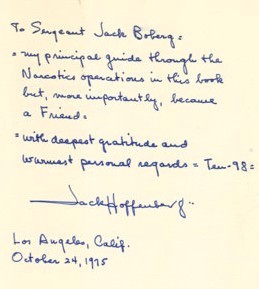 To Sergeant Jack Boberg =
= my principal guide through the
Narcotics operations in this book
but, more importantly, became
a Friend =
= with deepest gratitude and
warmest personal regards = Ten-98 =
Jack Hoffenberg..
Los Angeles, Calif.
October 24, 1975